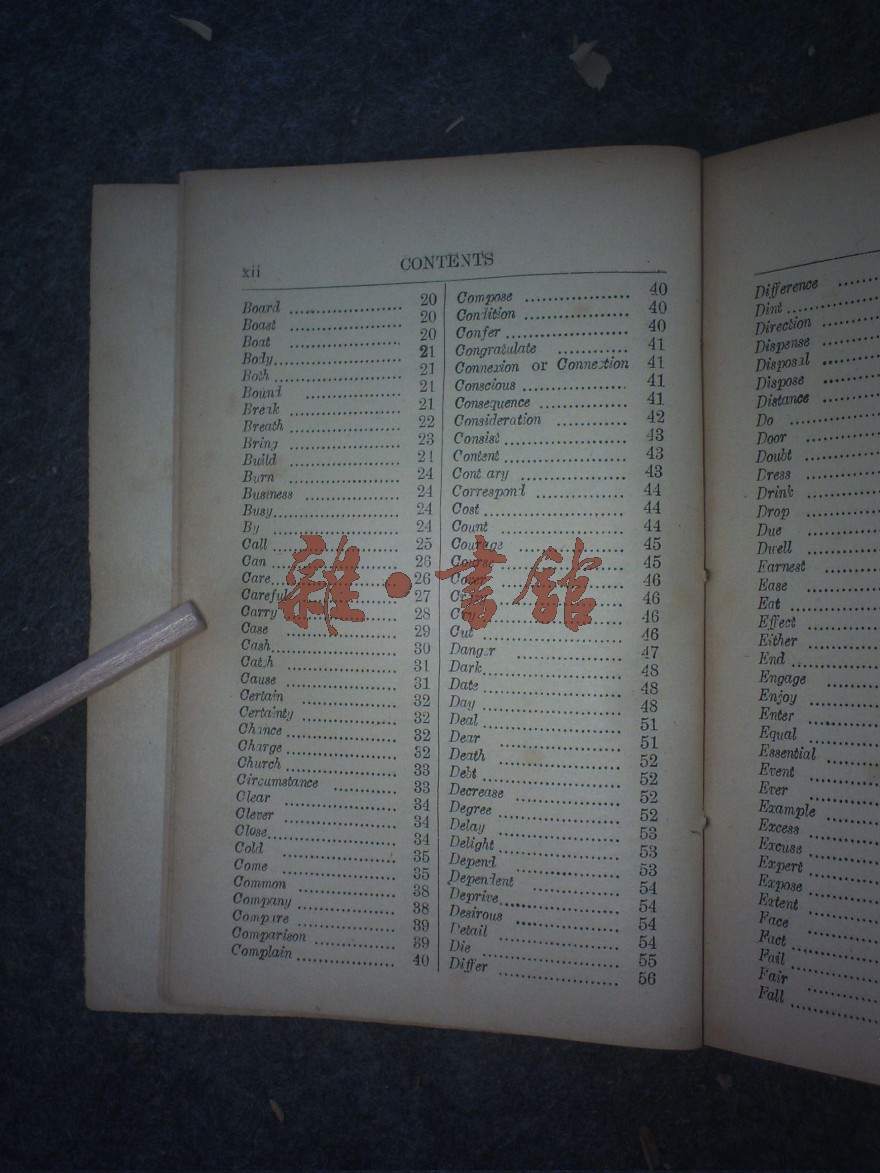 xii
CONTENTS
Board ........................ 20
Boast ........................ 20
Boat ........................ 20
Body ........................ 21
Both ........................ 21
Bound ........................ 21
Break ........................ 21
Breath ........................ 22
Bring ........................ 23
Build ........................ 24
Burn ........................ 24
Business ........................ 24
Busy ........................ 24
By ........................ 24
Call ........................ 25
Can ........................ 26
Care ........................ 26
Careful ........................ 27
Carry ........................ 28
Case ........................ 29
Cash ........................ 30
Catch ........................ 31
Cause ........................ 31
Certain ........................ 32
Certainty ........................ 32
Chance ........................ 32
Charge ........................ 32
Church ........................ 33
Circumstance ........................ 33
Clear ........................ 34
Clever ........................ 34
Close ........................ 34
Cold ........................ 35
Come ........................ 35
Common ........................ 38
Company ........................ 38
Compare ........................ 39
Comparison ........................ 39
Complain ........................ 40
Compose ........................ 40
Condition ........................ 40
Confer ........................ 40
Congratulate ........................ 41
Connexion or Connection 41
Conscious ........................ 41
Consequence ........................ 41
Consideration ........................ 42
Consist ........................ 43
Content ........................ 43
Contrary ........................ 43
Correspond ........................ 44
Cost ........................ 44
Count ........................ 44
Courage ........................ 45
Course ........................ 45
Cover ........................ 46
........................ 46
Cry ........................ 46
Cut ........................ 46
Danger ........................ 47
Dark ........................ 48
Date ........................ 48
Day ........................ 48
Deal ........................ 51
Dear ........................ 51
Death ........................ 52
Debt ........................ 52
Decrease ........................ 52
Degree ........................ 52
Delay ........................ 53
Delight ........................ 53
Depend ........................ 53
Dependent ........................ 54
Deprive ........................ 54
Desirous ........................ 54
Detail ........................ 54
Die ........................ 55
Differ ........................ 56
雜·書館
Difference ........
Dint ........
Direction ........
Dispense ........
Disposal ........
Dispose ........
Distance ........
Do ........
Door ........
Doubt ........
Dress ........
Drink ........
Drop ........
Due ........
Dwell ........
Earnest ........
Ease ........
Eat ........
Effect ........
Either ........
End ........
Engage ........
Enjoy ........
Enter ........
Equal ........
Essential ........
Event ........
Ever ........
Example ........
Excess ........
Excuse ........
Expert ........
Expose ........
Extent ........
Face ........
Fact ........
Fail ........
Fair ........
Fall ........